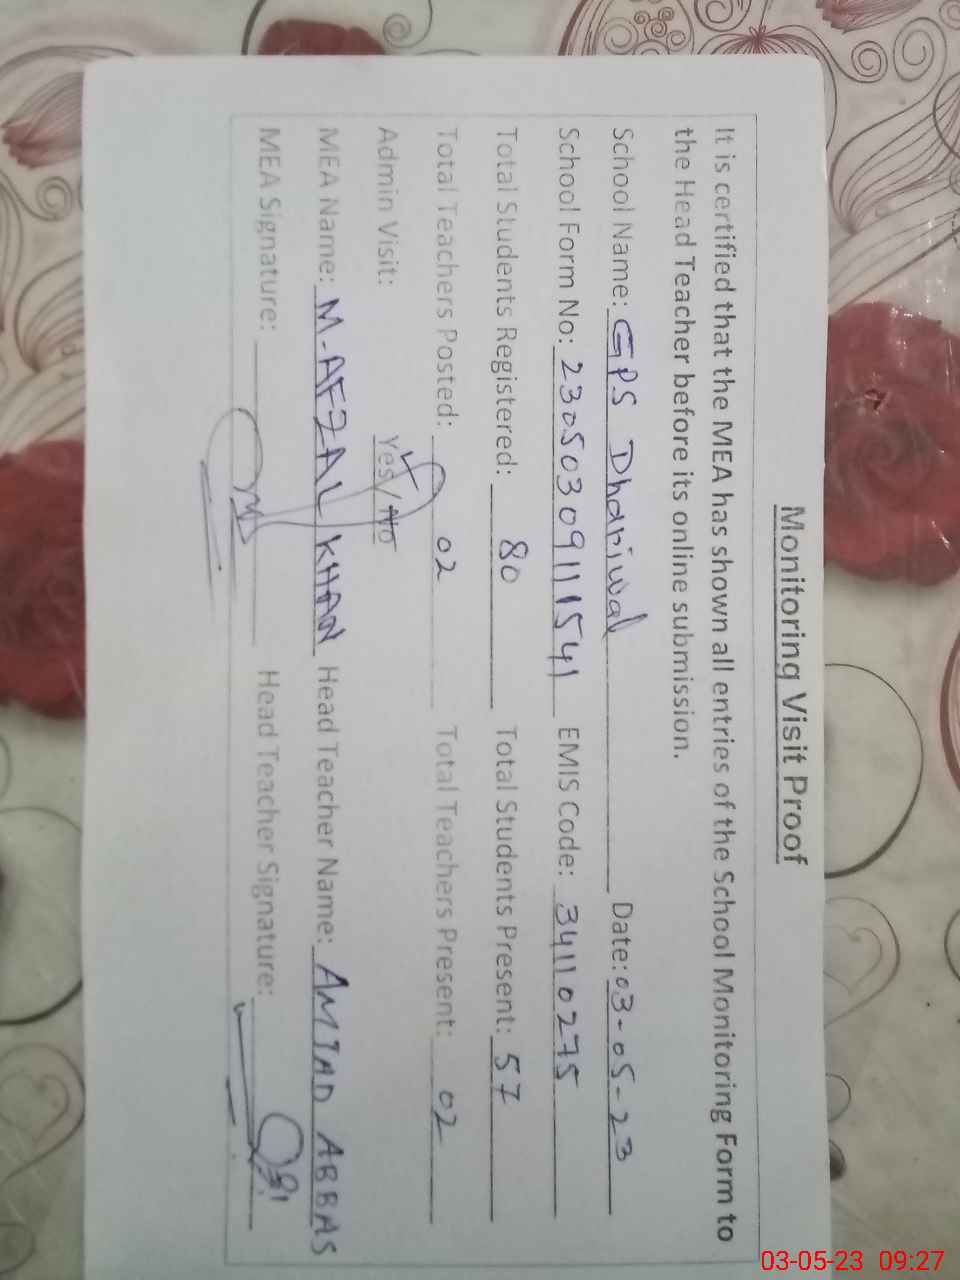 Monitoring Visit Proof
It is certified that the MEA has shown all entries of the School Monitoring Form to
the Head Teacher before its online submission.
School Name: GPS Dhariwal Date: 03-05-23
School Form No: 23050309111541 EMIS Code: 34110275
Total Students Registered: 80 Total Students Present: 57
Total Teachers Posted: 02 Total Teachers Present: 02
Admin Visit: Yes/No
MEA Name: M-AFZAL KHAN Head Teacher Name: AMJAD ABBAS
MEA Signature: Head Teacher Signature:
03-05-23 09:27